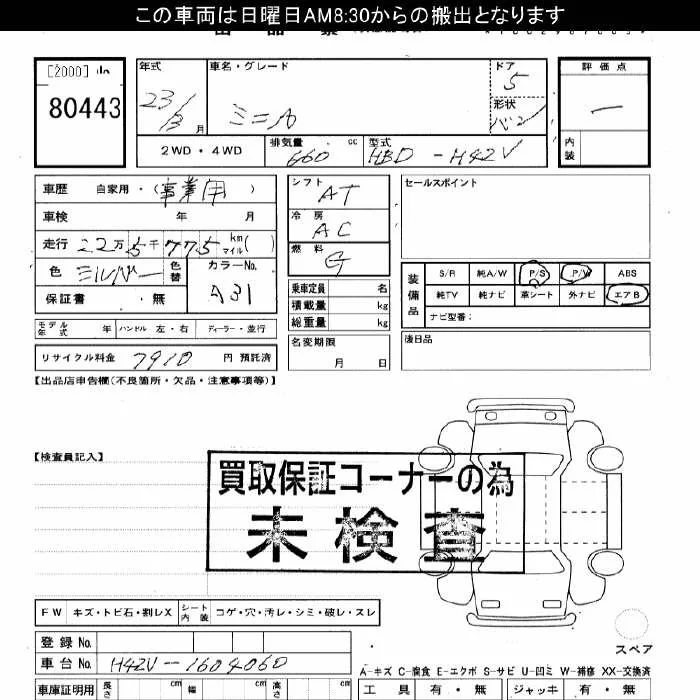 この車両は日曜日AM8:30からの搬出となります
[2000]
80443
年式 車名・グレード ドア
23/3月 ミニカ 5
形状 バン
2WD・4WD 排気量 660 cc 型式 HBD-H42V
評価点
—
内装
車歴 自家用・(事業用)
車検 年 月
走行 22万5千775 kmマイル( )
色 シルバー 色替 カラーNo. A31
保証書 ・ 無
モデル年式 年 ハンドル 左・右 ディーラー・並行
リサイクル料金 7910 円 預託済
シフト AT
冷房 AC
燃料 G
乗車定員 名
積載量 kg
総重量 kg
名変期限 月 日
セールスポイント
装備品 S/R 純A/W P/S P/W ABS
純TV 純ナビ 革シート 外ナビ エアB
ナビ型番:
後日品
【出品店申告欄(不良箇所・欠品・注意事項等)】
【検査員記入】
買取保証コーナーの為
未検査
FW キズ・トビ石・割レX シート内装 コゲ・穴・汚レ・シミ・破レ・スレ
スペア
登録No.
車台No. H42V-1604060
A-キズ C-腐食 E-エクボ S-サビ U-凹ミ W-補修 XX-交換済
車庫証明用 長さ cm 幅 cm 高さ cm
工具 有・無 ジャッキ 有・無